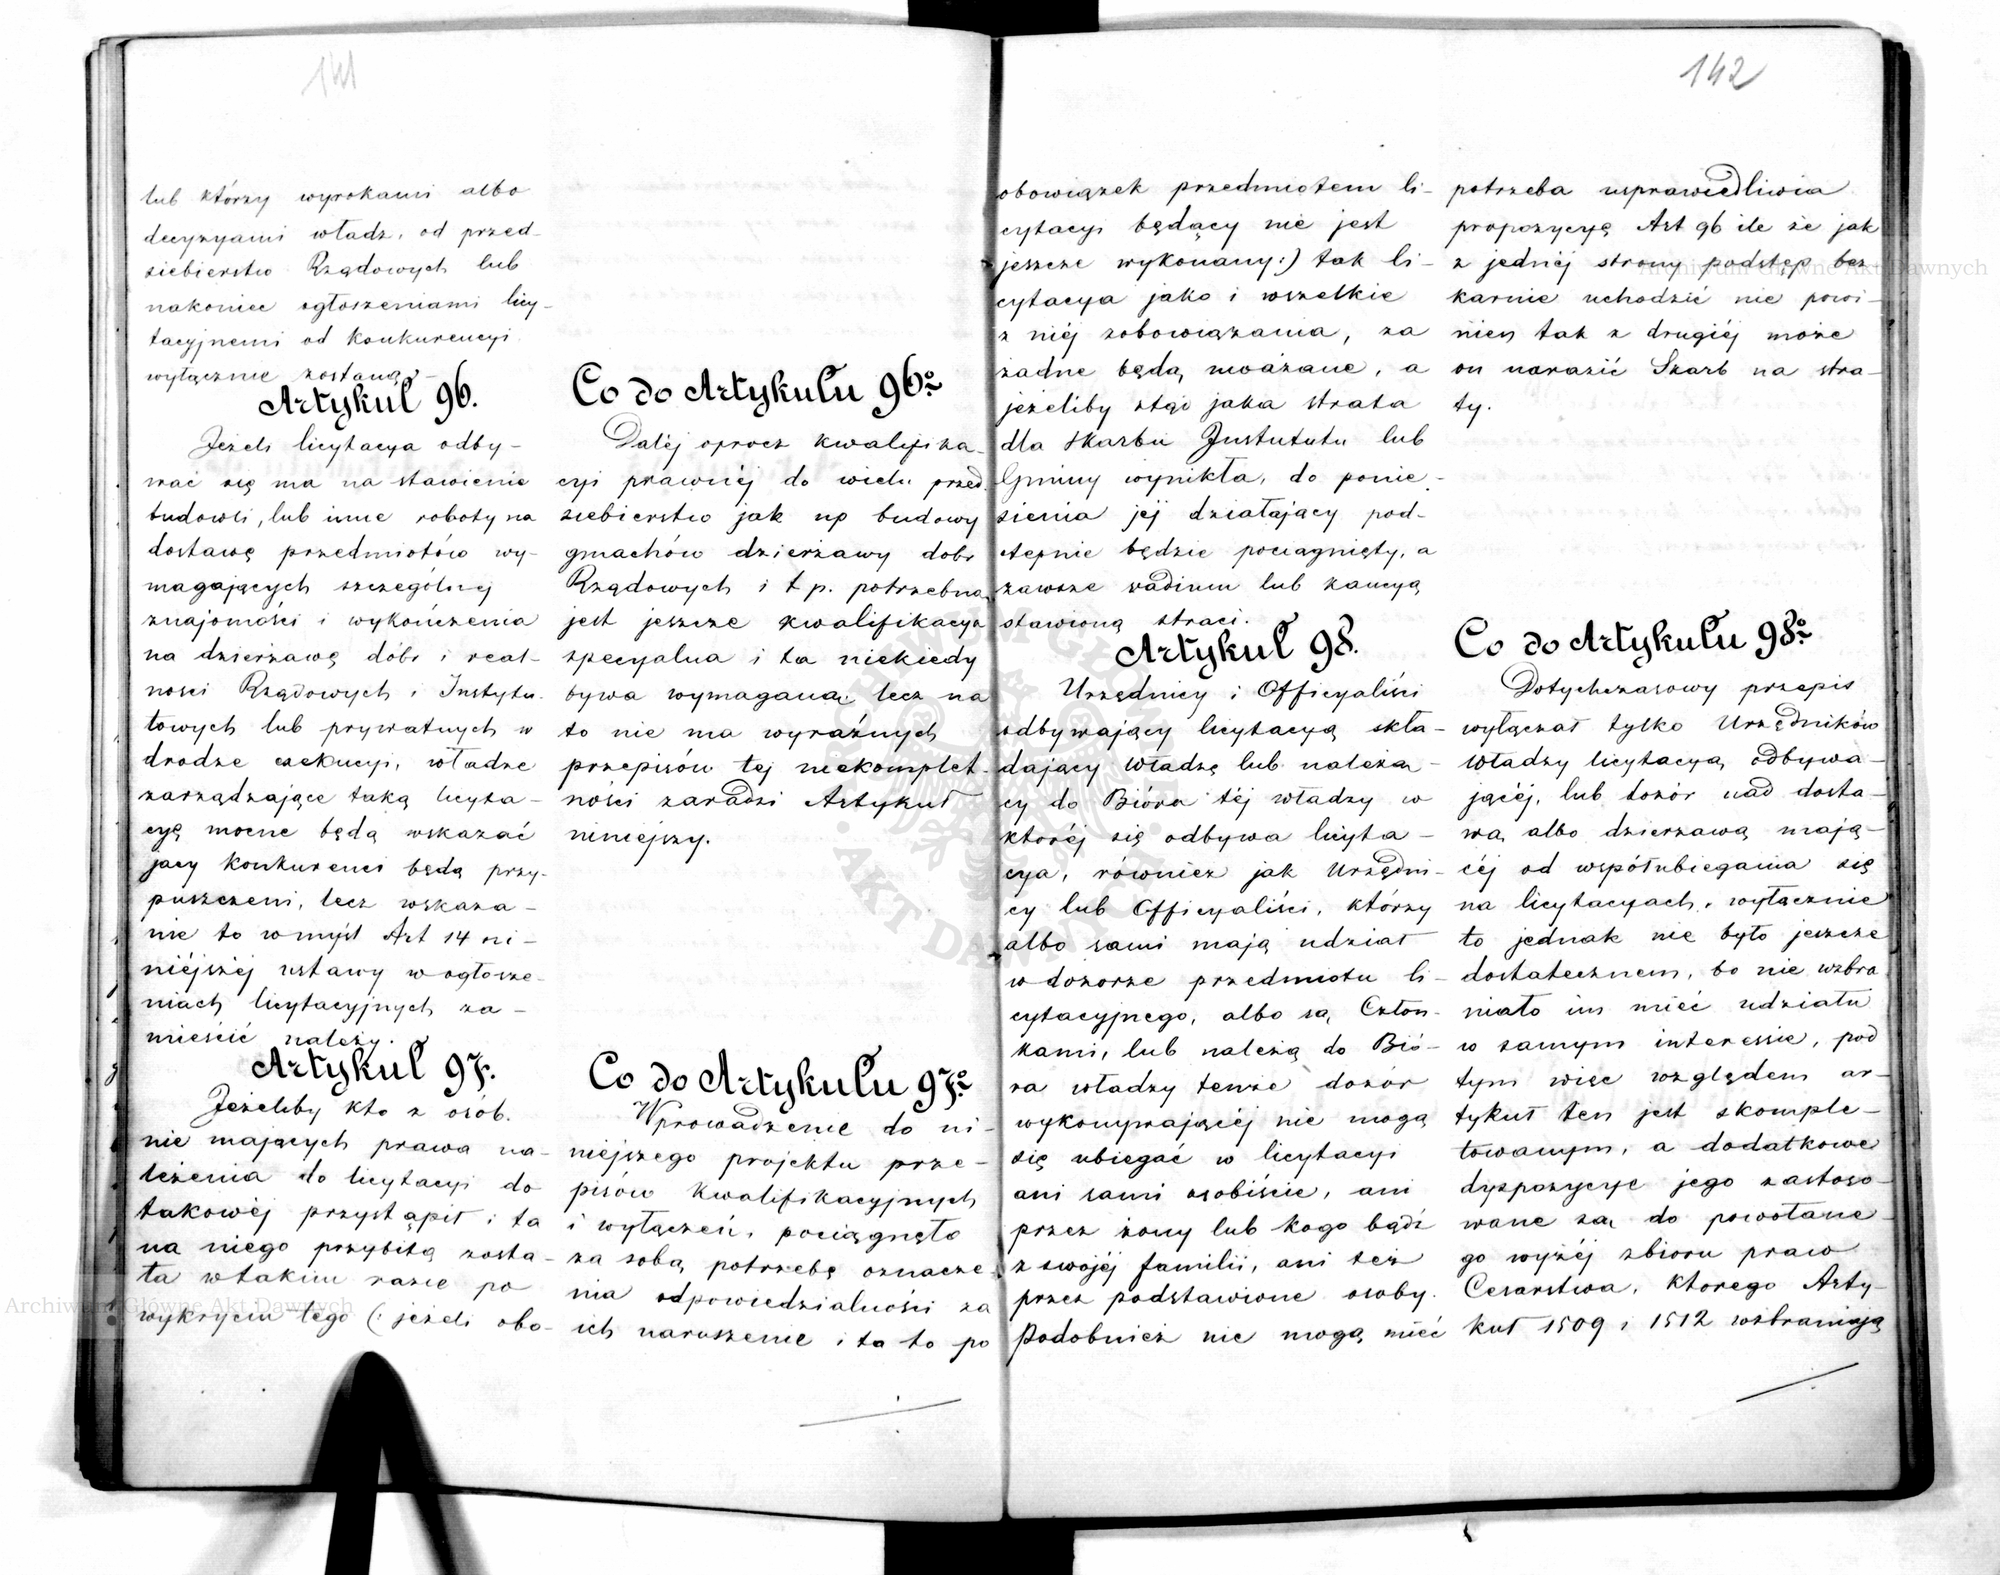 141
lub którzy wyrokami albo
decyzyami władz, od przed-
siebierstw Rządowych lub
nakoniec ogłoszeniami licy-
tacyjnemi od konkurencyi
wyłącznie zostaną.
Artykuł 96.
Jeżeli licytacya odby-
wać się ma na stawienie
budowli, lub inne roboty na
dostawę przedmiotów wy-
magających szczególnej
znajomości i wykończenia
na dzierżawę dóbr i real-
ności Rządowych i Instytu-
towych lub prywatnych w
drodze exekucyi, władze
zarządzające taką licyta-
cyę mocne będą wskazać
jacy konkurenci będą przy-
puszczeni, lecz wskaza-
nie to w myśl Art 14 ni-
niéjszéj ustawy w ogłosze-
niach licytacyjnych za-
mieścić należy.
Artykuł 97.
Jeżeliby kto z osób
nie mających prawa na-
leżenia do licytacyi do
takowéj przystąpił i ta
na niego przybitą zosta-
ła w takim razie po
wykryciu tego (: jeżeli obo-
Co do Artykułu 96º
Daléj oprócz kwalifika-
cyi prawnéj do wielu przed-
siebierstw jak np budowy
gmachów dzierżawy dóbr
Rządowych i t p. potrzebną
jest jeszcze kwalifikacya
specyalna i ta niekiedy
bywa wymaganą lecz na
to nie ma wyraźnych
przepisów tej niekomplet-
ności zaradzi Artykuł
niniejszy.
Co do Artykułu 97º
Wprowadzenie do ni-
niejszego projektu prze-
pisów kwalifikacyjnych
i wyłączeń, pociągnęło
za sobą potrzebę oznacze-
nia odpowiedzialności za
ich naruszenie i ta to po
142
obowiązek przedmiotem li-
cytacyi będący nie jest
jeszcze wykonany:) tak li-
cytacya jako i wszelkie
z niéj zobowiązania, za
żadne będą uważane, a
jeżeliby ztąd jaka strata
dla skarbu Instututu lub
Gminy wynikła, do ponie-
sienia jéj działający pod-
stępnie będzie pociągnięty, a
zawsze vadium lub kaucyą
stawioną straci.
Artykuł 98.
Urzędnicy i Officyaliści
odbywający licytacyą skła-
dający władzę lub należą-
cy do Bióra téj władzy w
któréj się odbywa licyta-
cya, równiez jak Urzędni-
cy lub Officyaliści, którzy
albo sami mają udział
w dozorze przedmiotu li-
cytacyjnego, albo są Człon-
kami, lub należą do Bió-
ra władzy tenże dozór
wykonywającéj nie mogą
się ubiegać w licytacyi
ani sami osobiście, ani
przez żony lub kogo bądź
z swojéj familii, ani też
przez podstawione osoby.
Podobnież nie mogą mieć
potrzeba usprawiedliwia
propozycyę Art 96 ile że jak
z jednéj strony podstęp bez
karnie uchodzić nie powi-
nien tak z drugiéj może
on narazić Skarb na stra-
ty.
Co do Artykułu 98º
Dotychczasowy przepis
wyłączał tylko Urzędników
władzy licytacyą odbywa-
jącéj, lub dozór nad dosta-
wą albo dzierzawą mają-
céj od współubiegania się
na licytacyach, wyłącznie
to jednak nie było jeszcze
dostatecznem, bo nie wzbra
niało im mieć udziału
w samym interessie, pod
tym więc względem ar-
tykuł ten jest skomple-
towanym, a dodatkowe
dyspozycye jego zastoso-
wane są do powołane-
go wyżéj zbioru praw
Cesarstwa, ktorego Arty-
kuł 1509 i 1512 wzbraniają
Archiwum Główne Akt Dawnych
Archiwum Główne Akt Dawnych